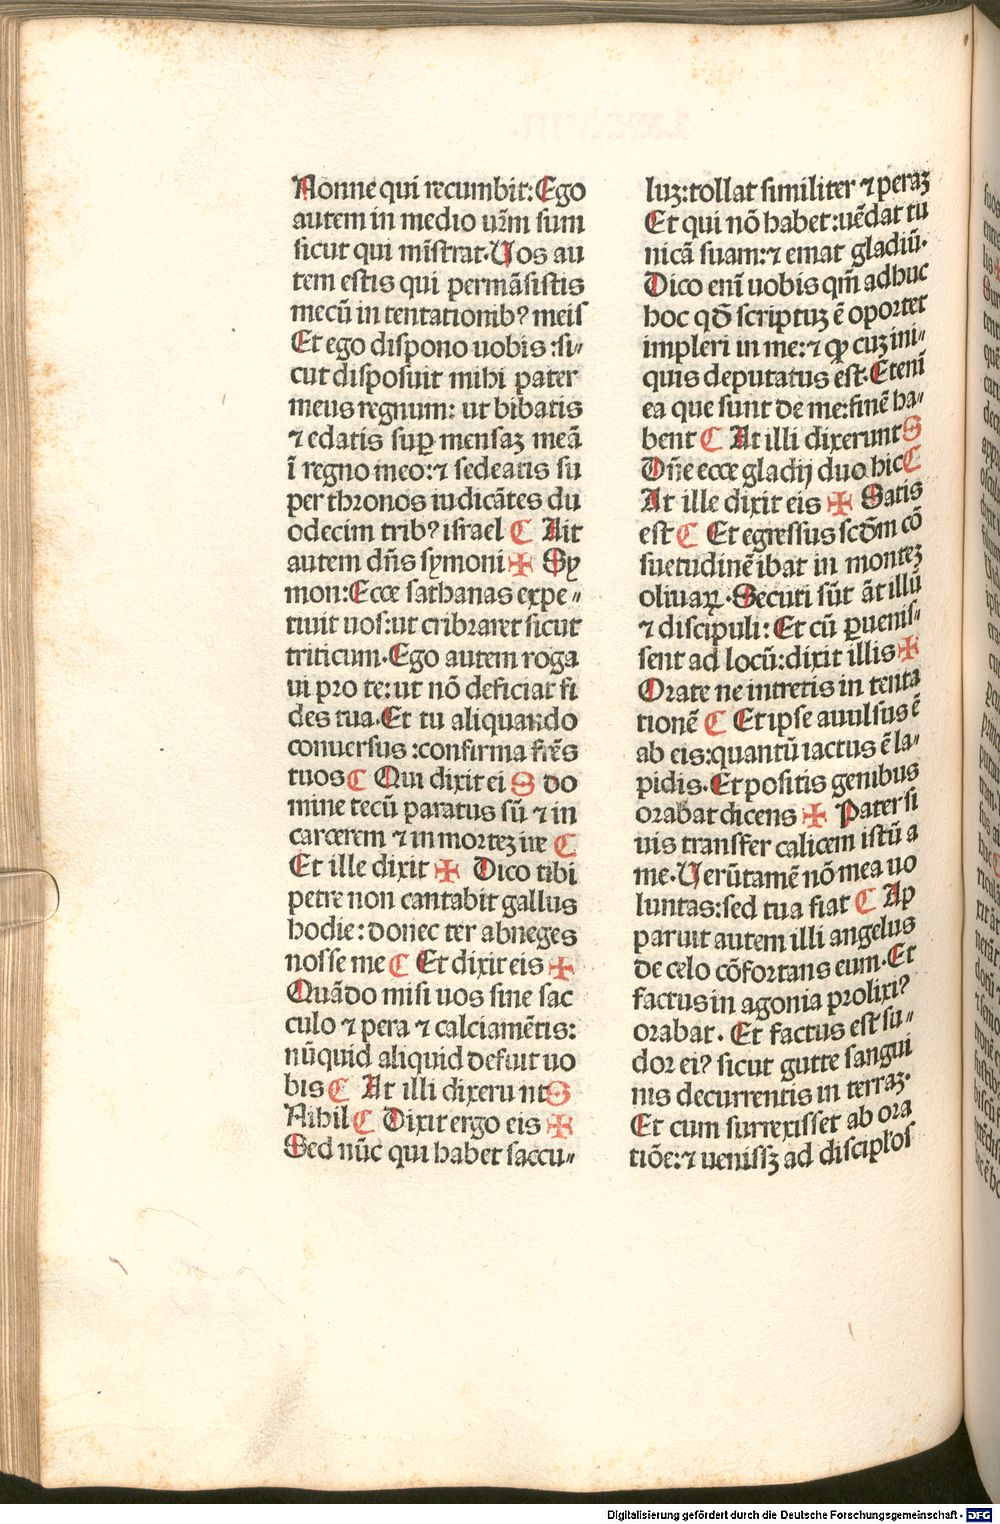 Nonne qui recumbit: Ego
autem in medio ur̃m sum
sicut qui mīstrat. Uos au
tem estis qui permāsistis
mecū in tentationibꝰ meis
Et ego dispono uobis :si⸗
cut disposuit mihi pater
meus regnum: ut bibatis
⁊ edatis sup̱ mensaꝫ meā
ī regno meo:⁊ sedeatis su
per thronos iudicātes du
odecim tribꝰ israel C Ait
autem dñs symoni ✠ Sy
mon:Ecce sathanas expe⸗
tiuit uos:ut cribraret sicut
triticum. Ego autem roga
ui pro te:ut nō deficiat fi
des tua. Et tu aliquando
conuersus :confirma frēs
tuos C Qui dixit ei S do
mine tecū paratus sū ⁊ in
carcerem ⁊ in morteꝫ ire C
Et ille dixit ✠ Dico tibi
petre non cantabit gallus
hodie: donec ter abneges
nosse me C Et dixit eis ✠
Quādo misi uos sine sac
culo ⁊ pera ⁊ calciamētis:
nūquid aliquid defuit uo
bis C At illi dixerunt S
Nihil C Dixit ergo eis ✠
Sed nūc qui habet saccu⸗
luꝫ:tollat similiter ⁊ peraꝫ
Et qui nō habet:uēdat tu
nicā suam:⁊ emat gladiū.
Dico enī uobis qm̄ adhuc
hoc qđ scriptuꝫ ē oportet
impleri in me:⁊ qꝫ cuꝫ ini⸗
quis deputatus est. Etenī
ea que sunt de me:finē ha⸗
bent C At illi dixerunt S
Dñe ecce gladij duo hic C
At ille dixit eis ✠ Satis
est C Et egressus scđm cō
suetudinē ibat in monteꝫ
oliuaꝝ. Secuti sūt āt illū
⁊ discipuli: Et cū ꝑuenis⸗
sent ad locū:dixit illis ✠
Orate ne intretis in tenta
tionē C Et ipse auulsus ē
ab eis:quantū iactus ē la⸗
pidis. Et positis genibus
orabat dicens ✠ Pater si
uis transfer calicem istū a
me. Uerūtamē nō mea uo
luntas:sed tua fiat C Ap
paruit autem illi angelus
de celo cōfortans eum. Et
factus in agonia prolixiꝰ
orabat. Et factus est su⸗
dor eiꝰ sicut gutte sangui
nis decurrentis in terraꝫ.
Et cum surrexisset ab ora
tiōe:⁊ uenissꝫ ad discipłos
Digitalisierung gefördert durch die Deutsche Forschungsgemeinschaft - DFG